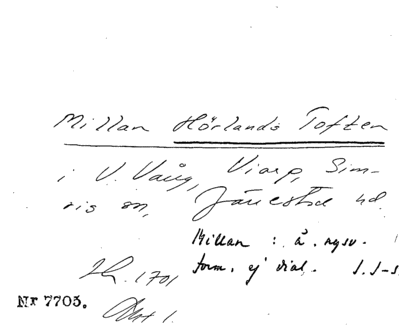 Millan Hörlands Toften
i V. Vång, Viarp, Sim-
ris sn, Järrestad hd.
Millan : å. nysv.
form. ej dial. J.J-s
Lh. 1701
Akt 1.
Nr 7703.